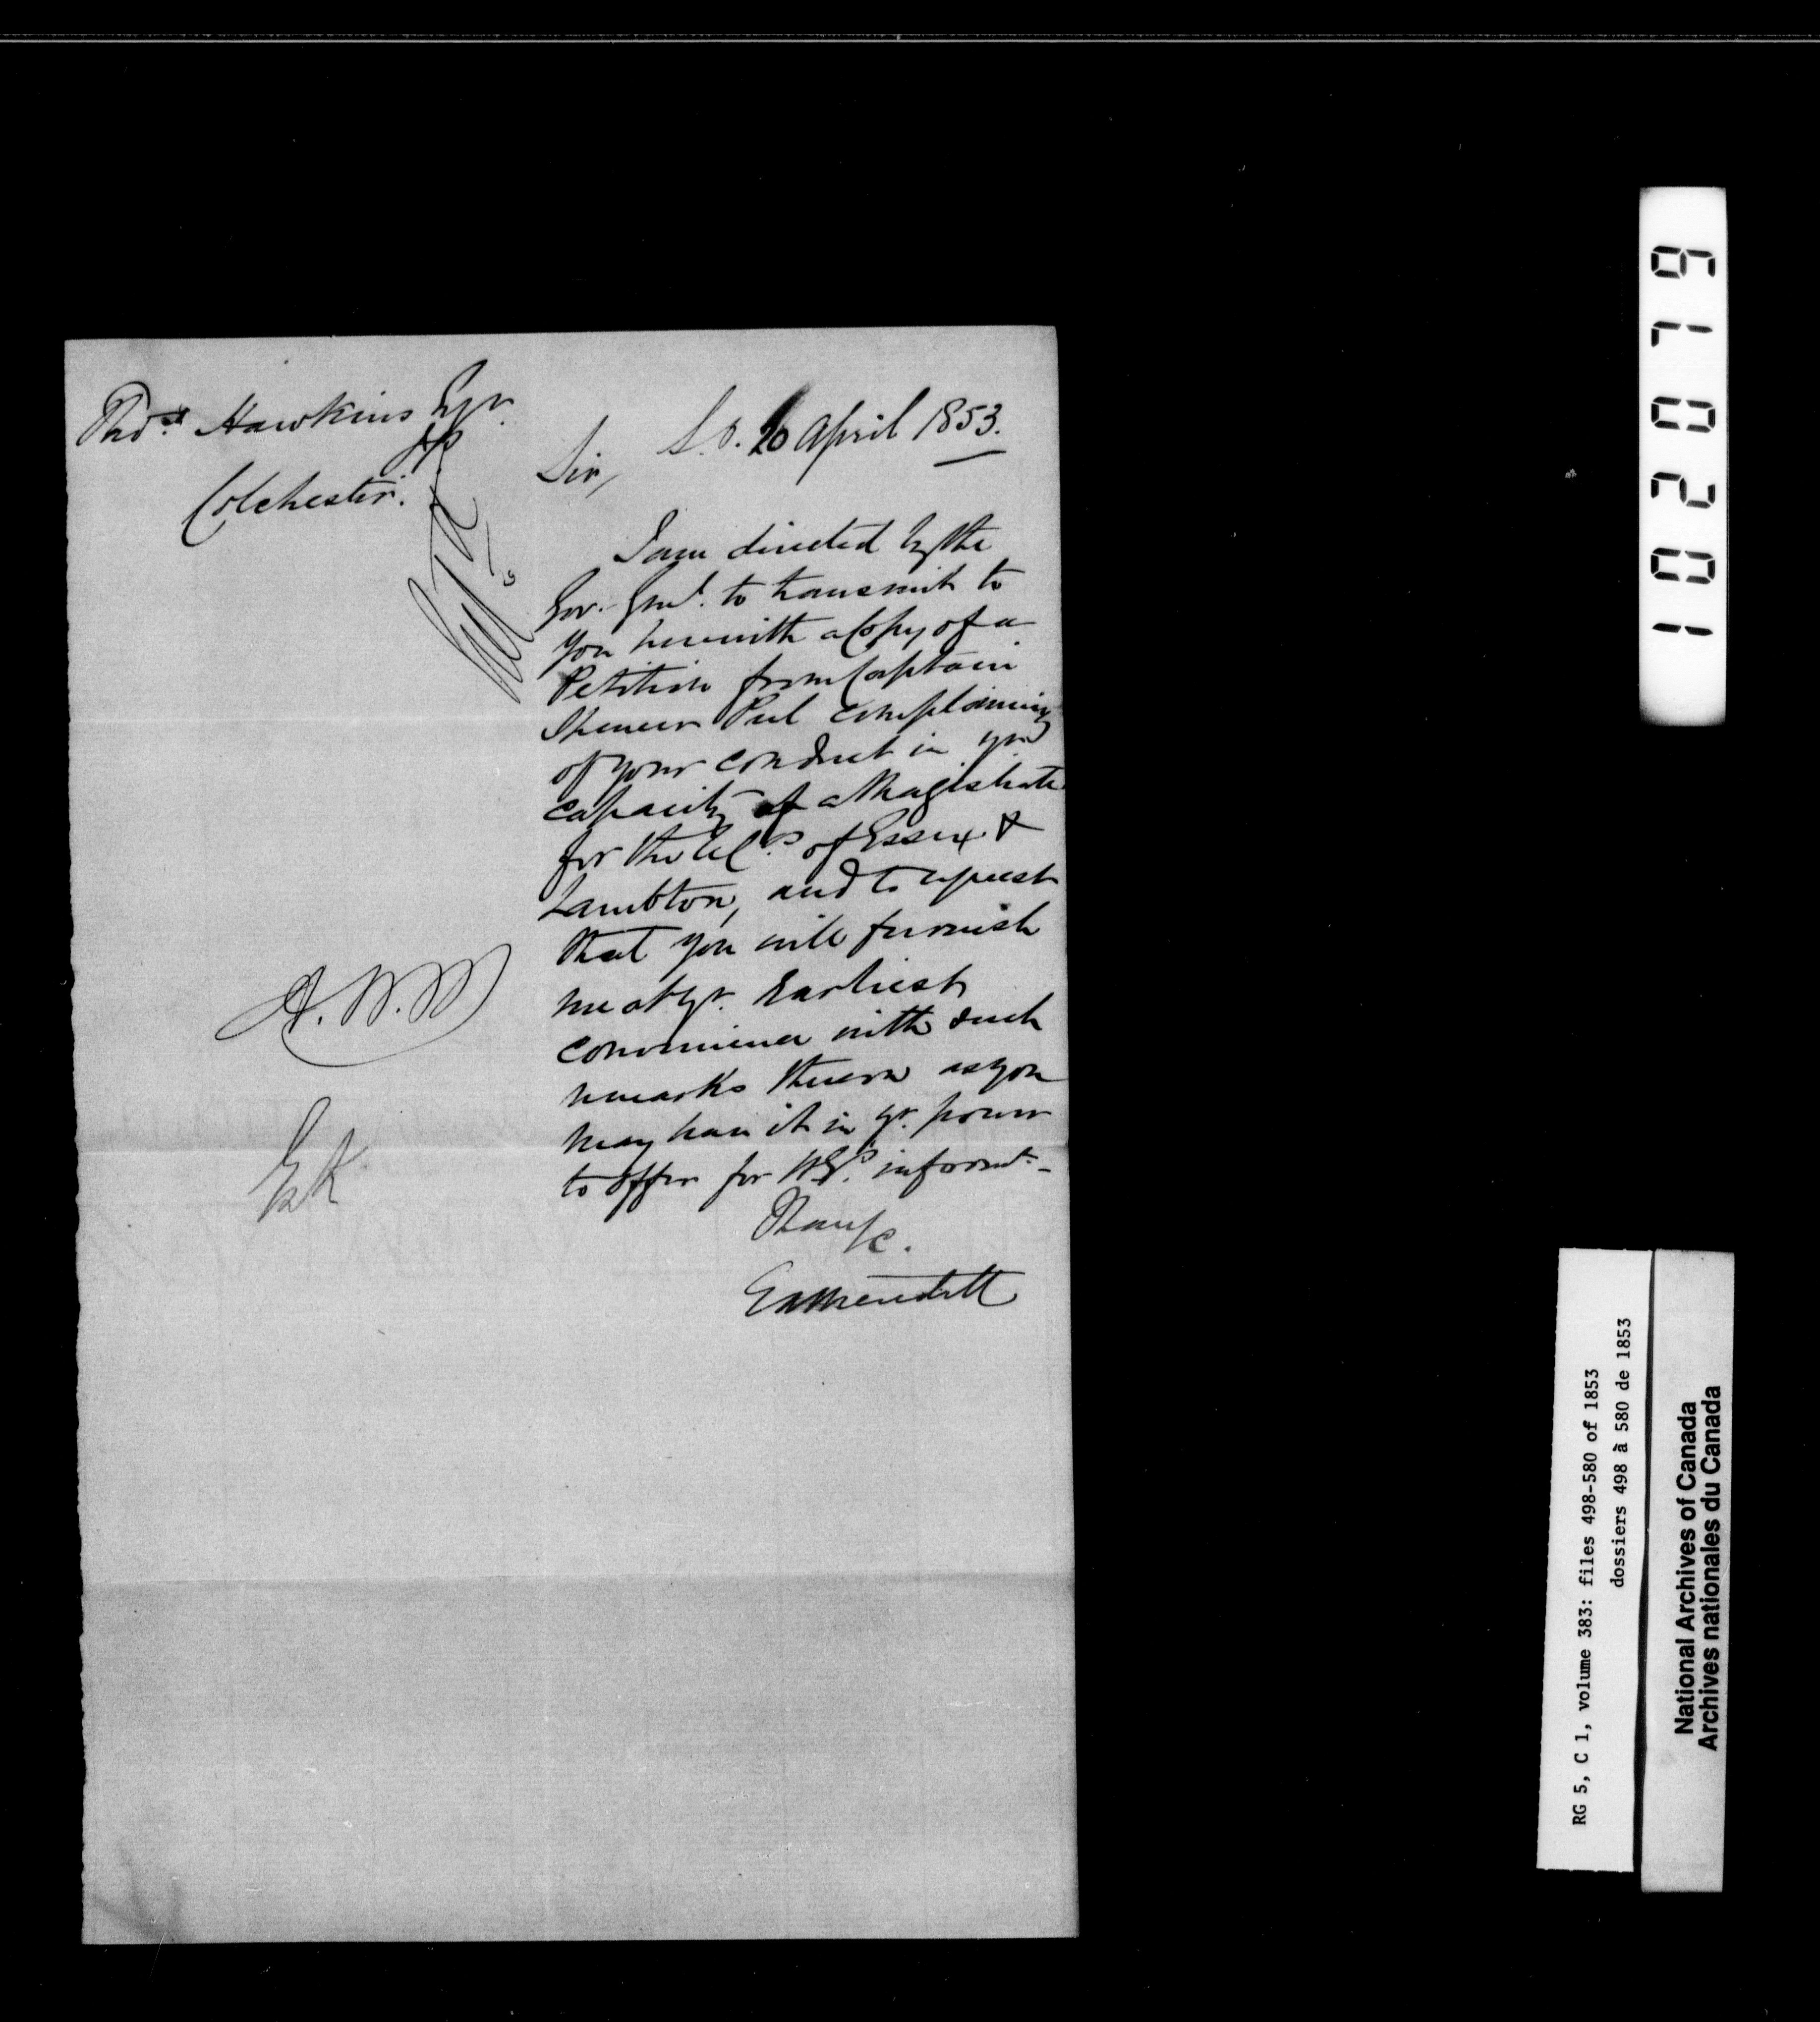 Thos. Hawkins Esqr.
JP.
Colchester.
S.O. 20 April 1853.
Sir,
I am directed by the
Gov. Genl. to transmit to
you herewith a Copy of a
Petition from Captain
Peel complaining
of your conduct in yr.
capacity of a Magistrate
for the U.C.s of Essex &
Lambton, and to request
that you will furnish
me at yr. Earliest
convenience with such
remarks thereon as you
may have it in yr. power
to offer for H.E.s informt.-
I have &c.
E A Meredith
A.N.M
EK
102079
RG 5, C 1, volume 383: files 498-580 of 1853
dossiers 498 à 580 de 1853
National Archives of Canada
Archives nationales du Canada